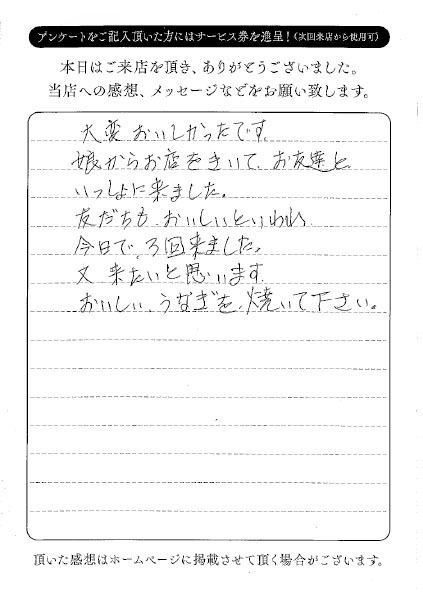 アンケートをご記入頂いた方にはサービス券を進呈！（次回来店から使用可）
本日はご来店を頂き、ありがとうございました。
当店への感想、メッセージなどをお願い致します。
大変おいしかったです。
娘からお店をきいて、お友達と
いっしょに来ました。
友だちも、おいしいといわれ
今日で、3回来ました。
又来たいと思います。
おいしい、うなぎを、焼いて下さい。
頂いた感想はホームページに掲載させて頂く場合がございます。